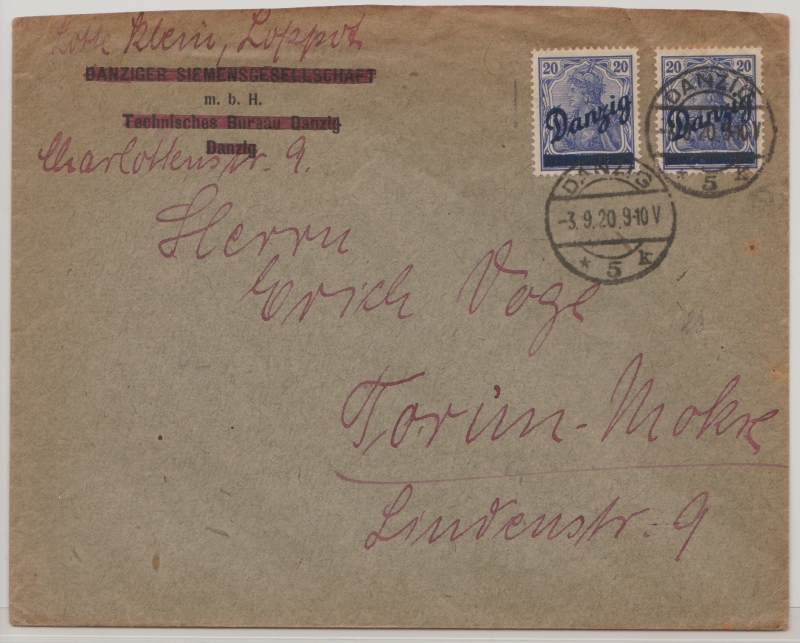 Lotte Klein, Zoppot
DANZIGER SIEMENSGESELLSCHAFT
m. b. H.
Technisches Bureau Danzig
Danzig
Charlottenstr. 9.
20 20
Danzig
20 20
Danzig
DANZIG
-3.9.20.9-10V
* 5 k
DANZIG
-3.9.20.9-10V
* 5 k
Herrn
Erich Voge
Torún-Mokre
Lindenstr. 9